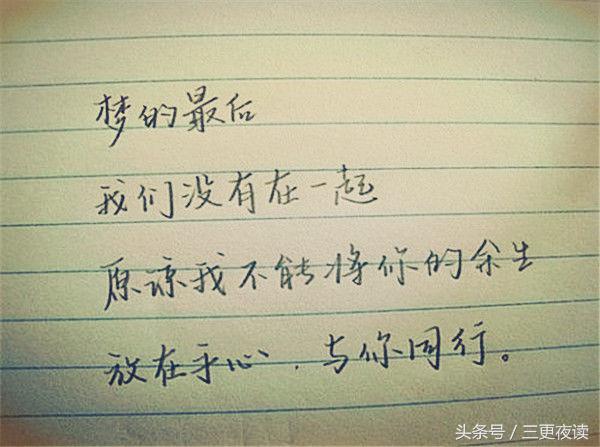 梦的最后
我们没有在一起
原谅我不能将你的余生
放在手心、与你同行。
头条号／三更夜读